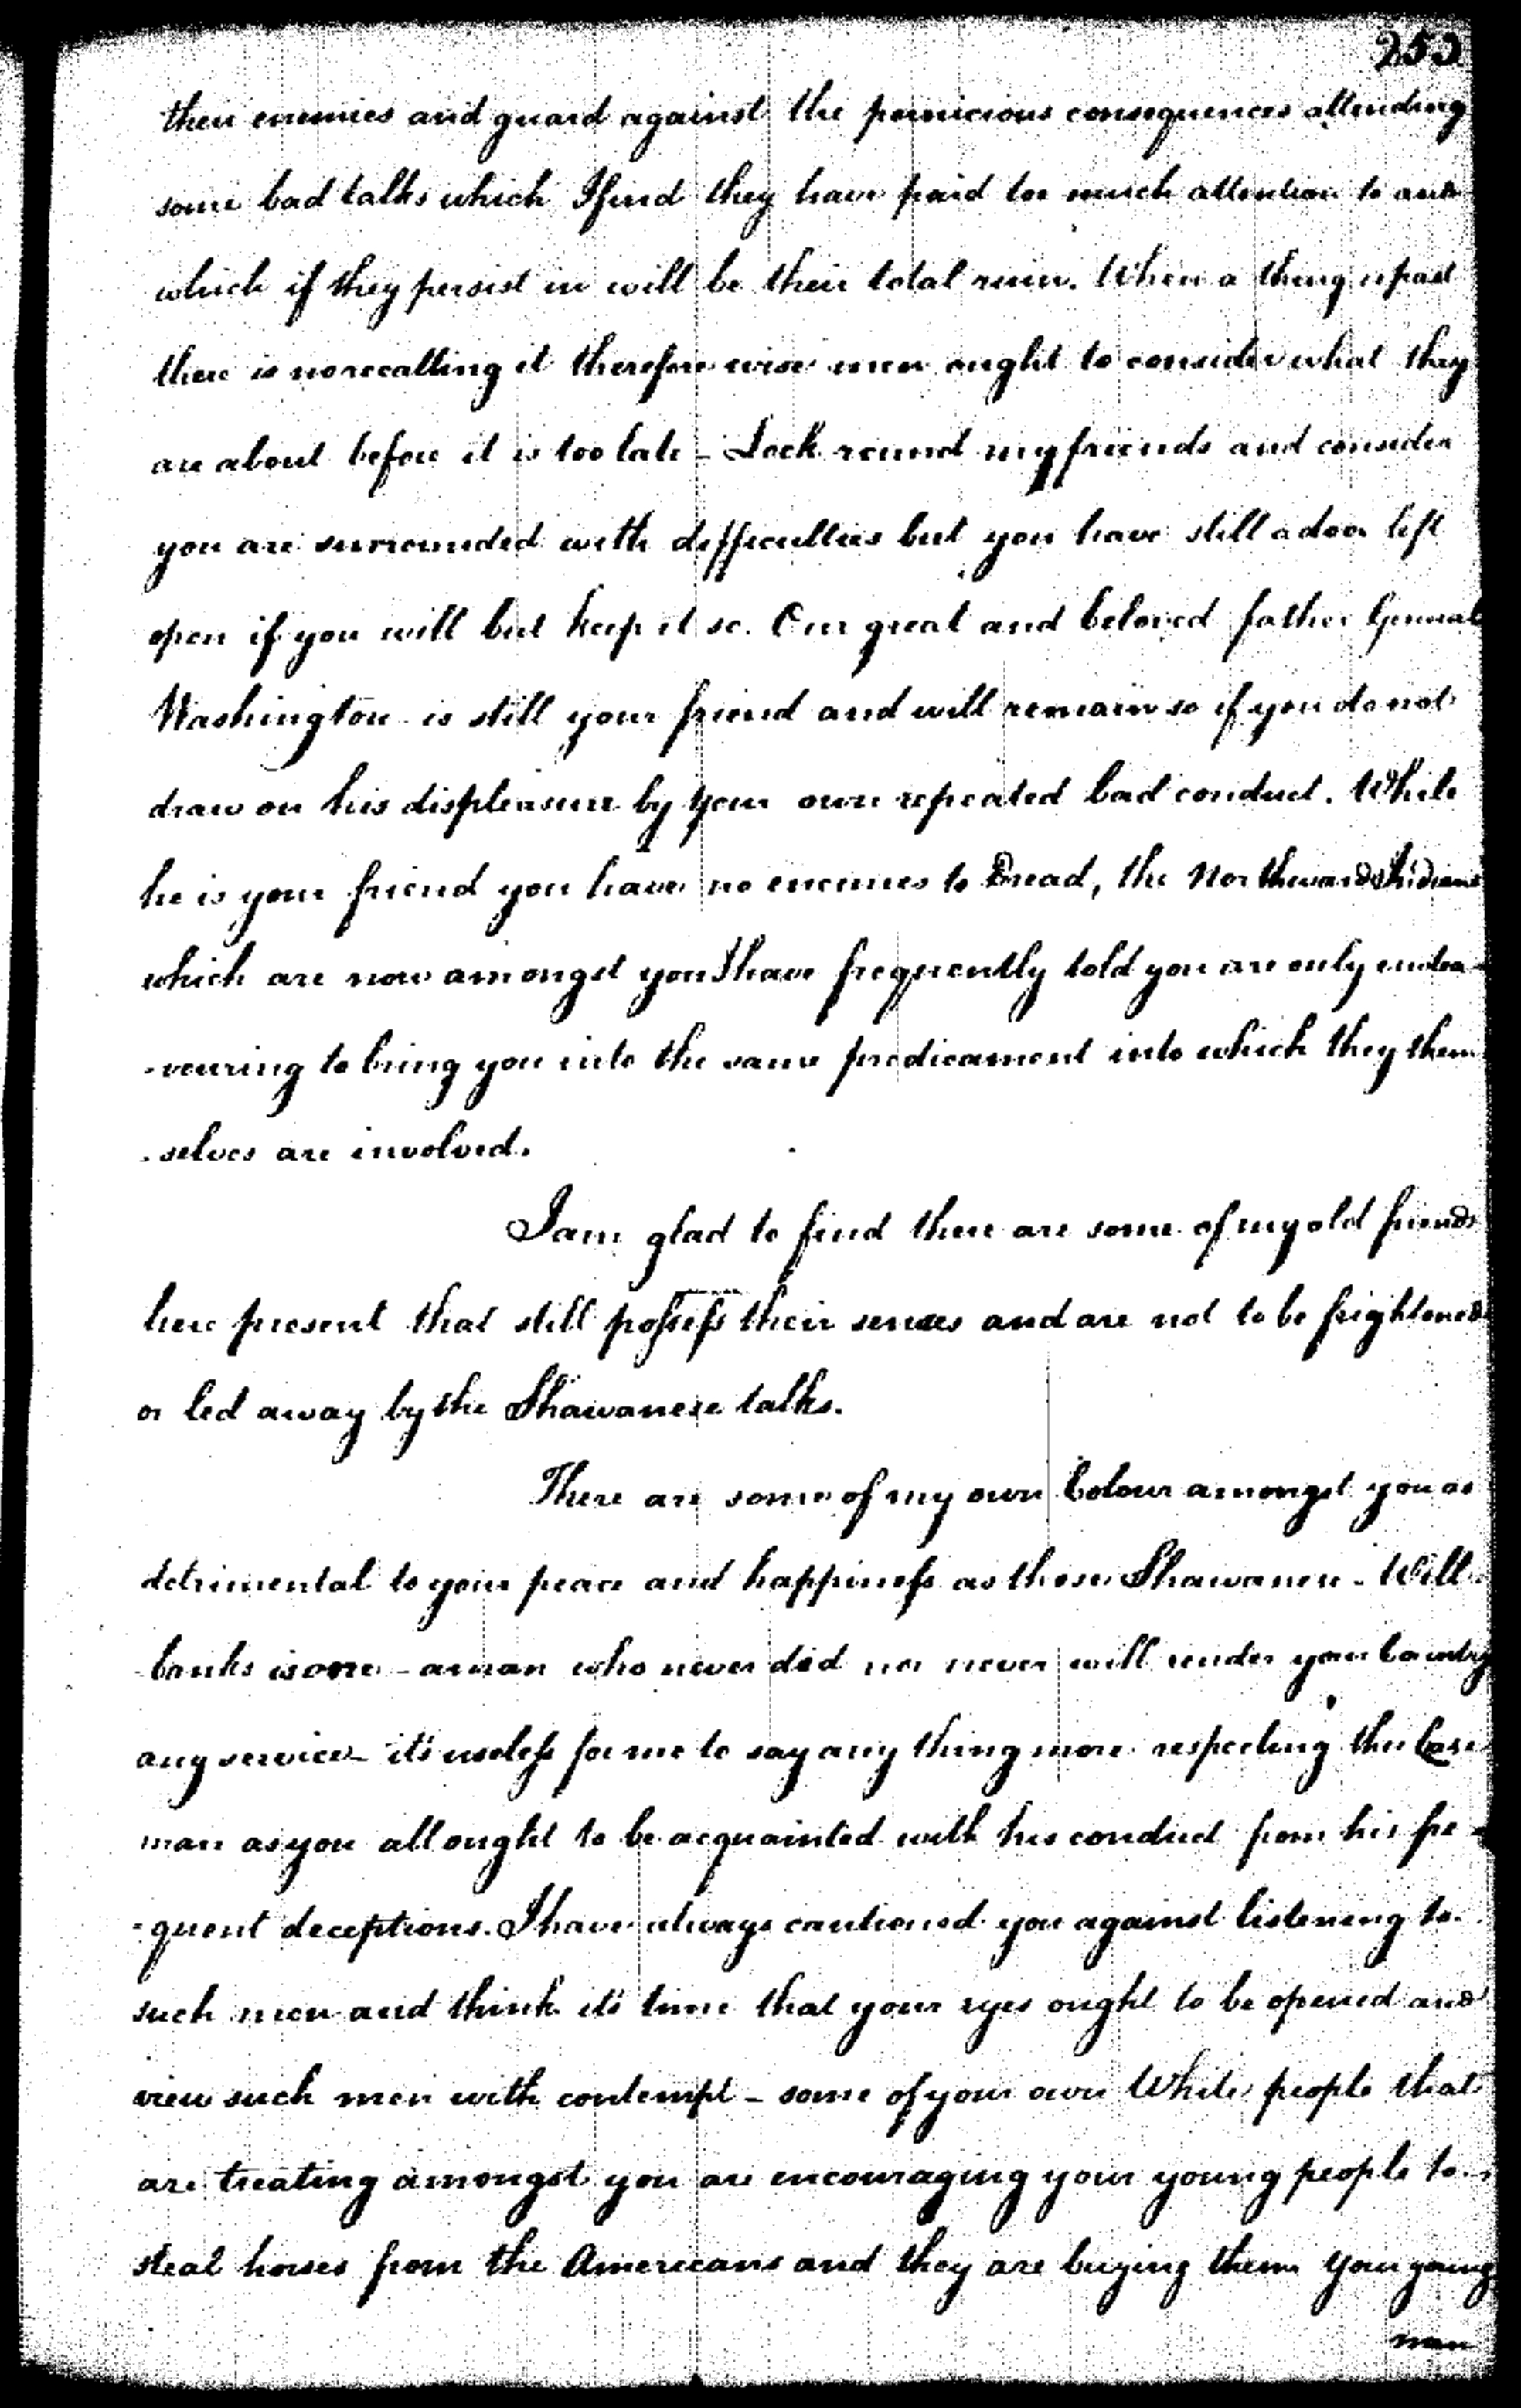 253
their enemies and guard against the pernicious consequences attending
some bad talks which I find they have paid too much attention to and
which if they persist in will be their total ruin. When a thing is past
there is no recalling it therefore wise men ought to consider what they
are about before it is too late - Look round my friends and consider
you are surrounded with difficulties but you have still a door left
open if you will but keep it so. Our great and beloved father General
Washington is still your friend and will remain so if you do not
draw on his displeasure by your own repeated bad conduct. While
he is your friend you have no enemies to Dread, the Northward Indians
which are now amongst you I have frequently told you are only endea-
-vouring to bring you into the same predicament into which they them
-selves are involved.
I am glad to find there are some of my old friends
here present that still possess their senses and are not to be frightened
or led away by the Shawanese talks.
There are some of my own Colour amongst you as
detrimental to your peace and happiness as those Shawanese. Will-
-banks is one - a man who never did nor never will render your Country
any service - it's useless for me to say any thing more respecting this base
man as you all ought to be acquainted with his conduct from his fre-
-quent deceptions. I have always cautioned you against listening to
such men and think it's time that your eyes ought to be opened and
view such men with contempt - some of your own White people that
are treating amongst you are encouraging your young people to
steal horses from the Americans and they are buying them your young
men